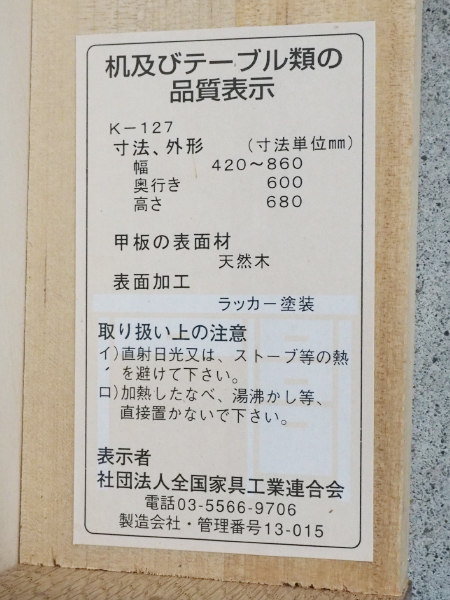 机及びテーブル類の
品質表示
K-127
寸法、外形 (寸法単位mm)
幅 420〜860
奥行き 600
高さ 680
甲板の表面材
天然木
表面加工
ラッカー塗装
取り扱い上の注意
イ)直射日光又は、ストーブ等の熱
を避けて下さい。
ロ)加熱したなべ、湯沸かし等、
直接置かないで下さい。
表示者
社団法人全国家具工業連合会
電話03-5566-9706
製造会社・管理番号13-015